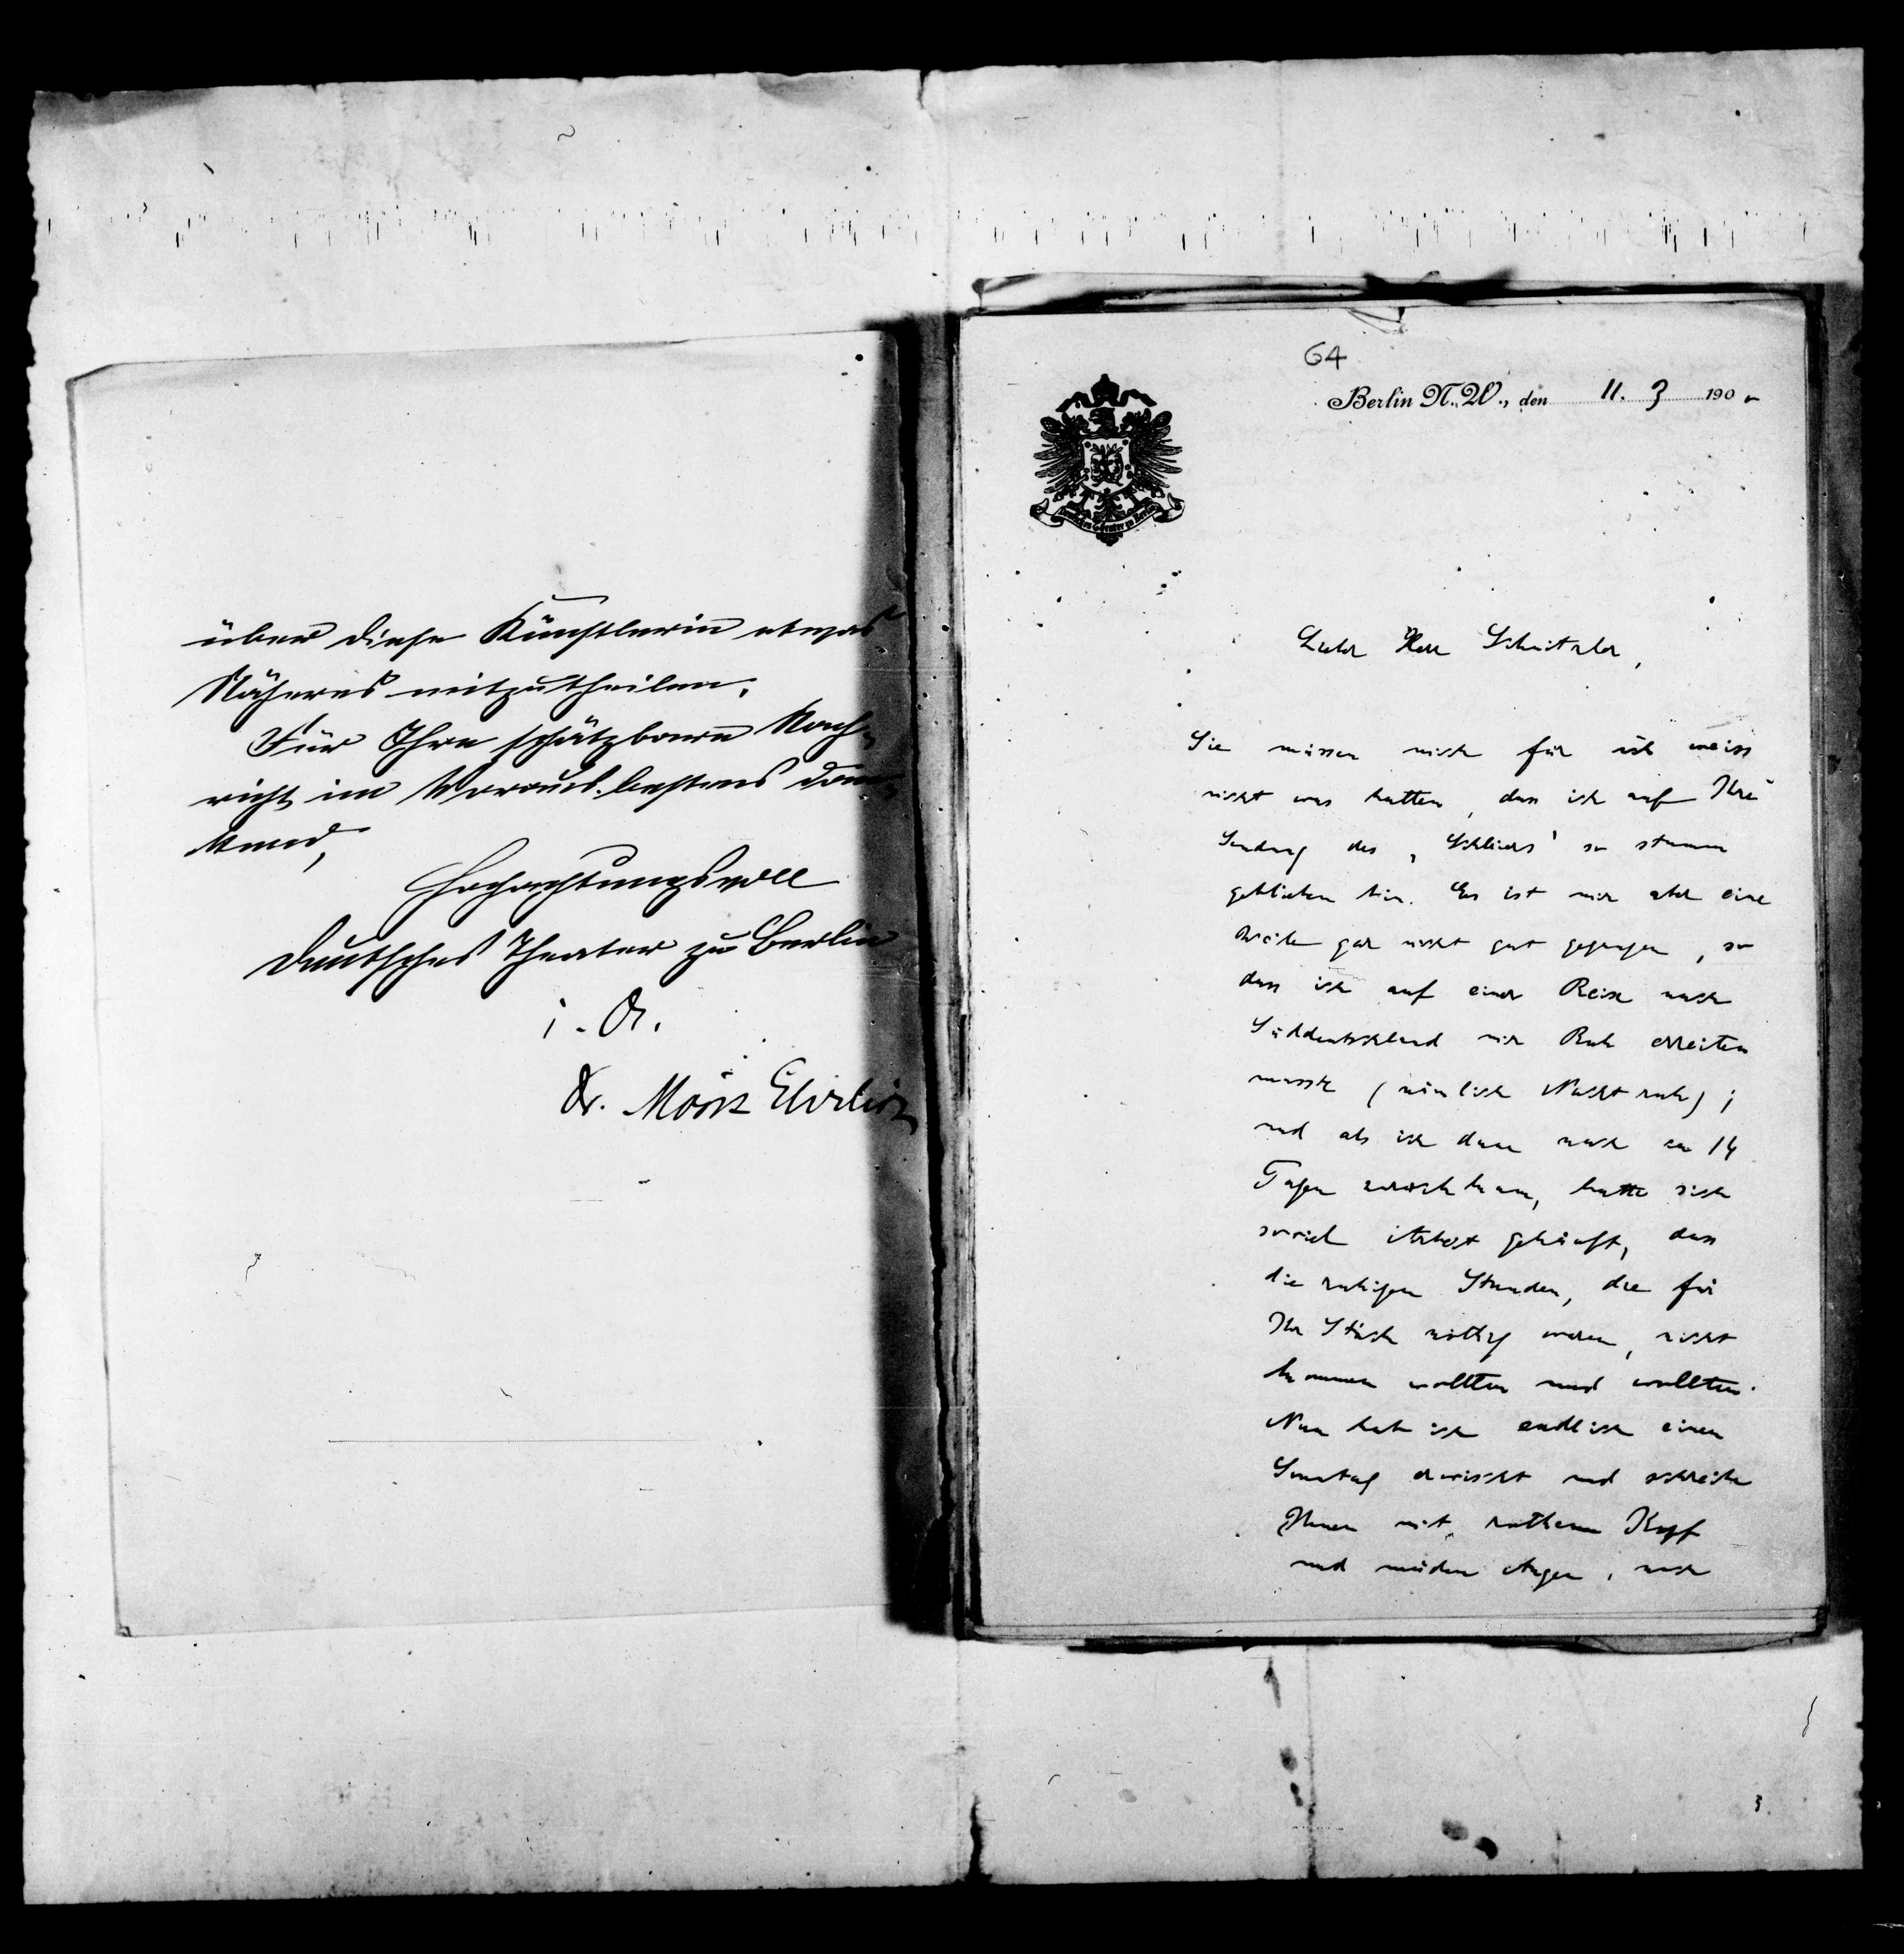 über diese Künstlerin etwas
Näheres mitzutheilen.
Für Ihre schätzbare Nach-
richt im Voraus bestens dan-
kend,
Hochachtungsvoll
Deutsches Theater zu Berlin
i. A.
Dr. Moriz Ehrlich
64
Berlin N.W., den 11. 3 190
Deutsches Theater zu Berlin
Lieber Herr Schnitzler,
Sie müssen mich für ich weiss
nicht was halten, dass ich auf Ihre
Sendung des „Schleiers“ so stumm
geblieben bin. Es ist mir aber eine
Weile gar nicht gut gegangen, so
dass ich auf einer Reise nach
Süddeutschland mir Ruhe erreiten
musste (nämlich Nachtruhe);
und als ich dann nach ca 14
Tagen zurückkam, hatte sich
soviel Arbeit gehäuft, dass
die ruhigen Stunden, die für
Ihr Stück nöthig waren, nicht
kommen wollten und wollten.
Nun hab ich endlich einen
Sonntag erwischt und schreibe
Ihnen mit rothem Kopf
und müden Augen, nach